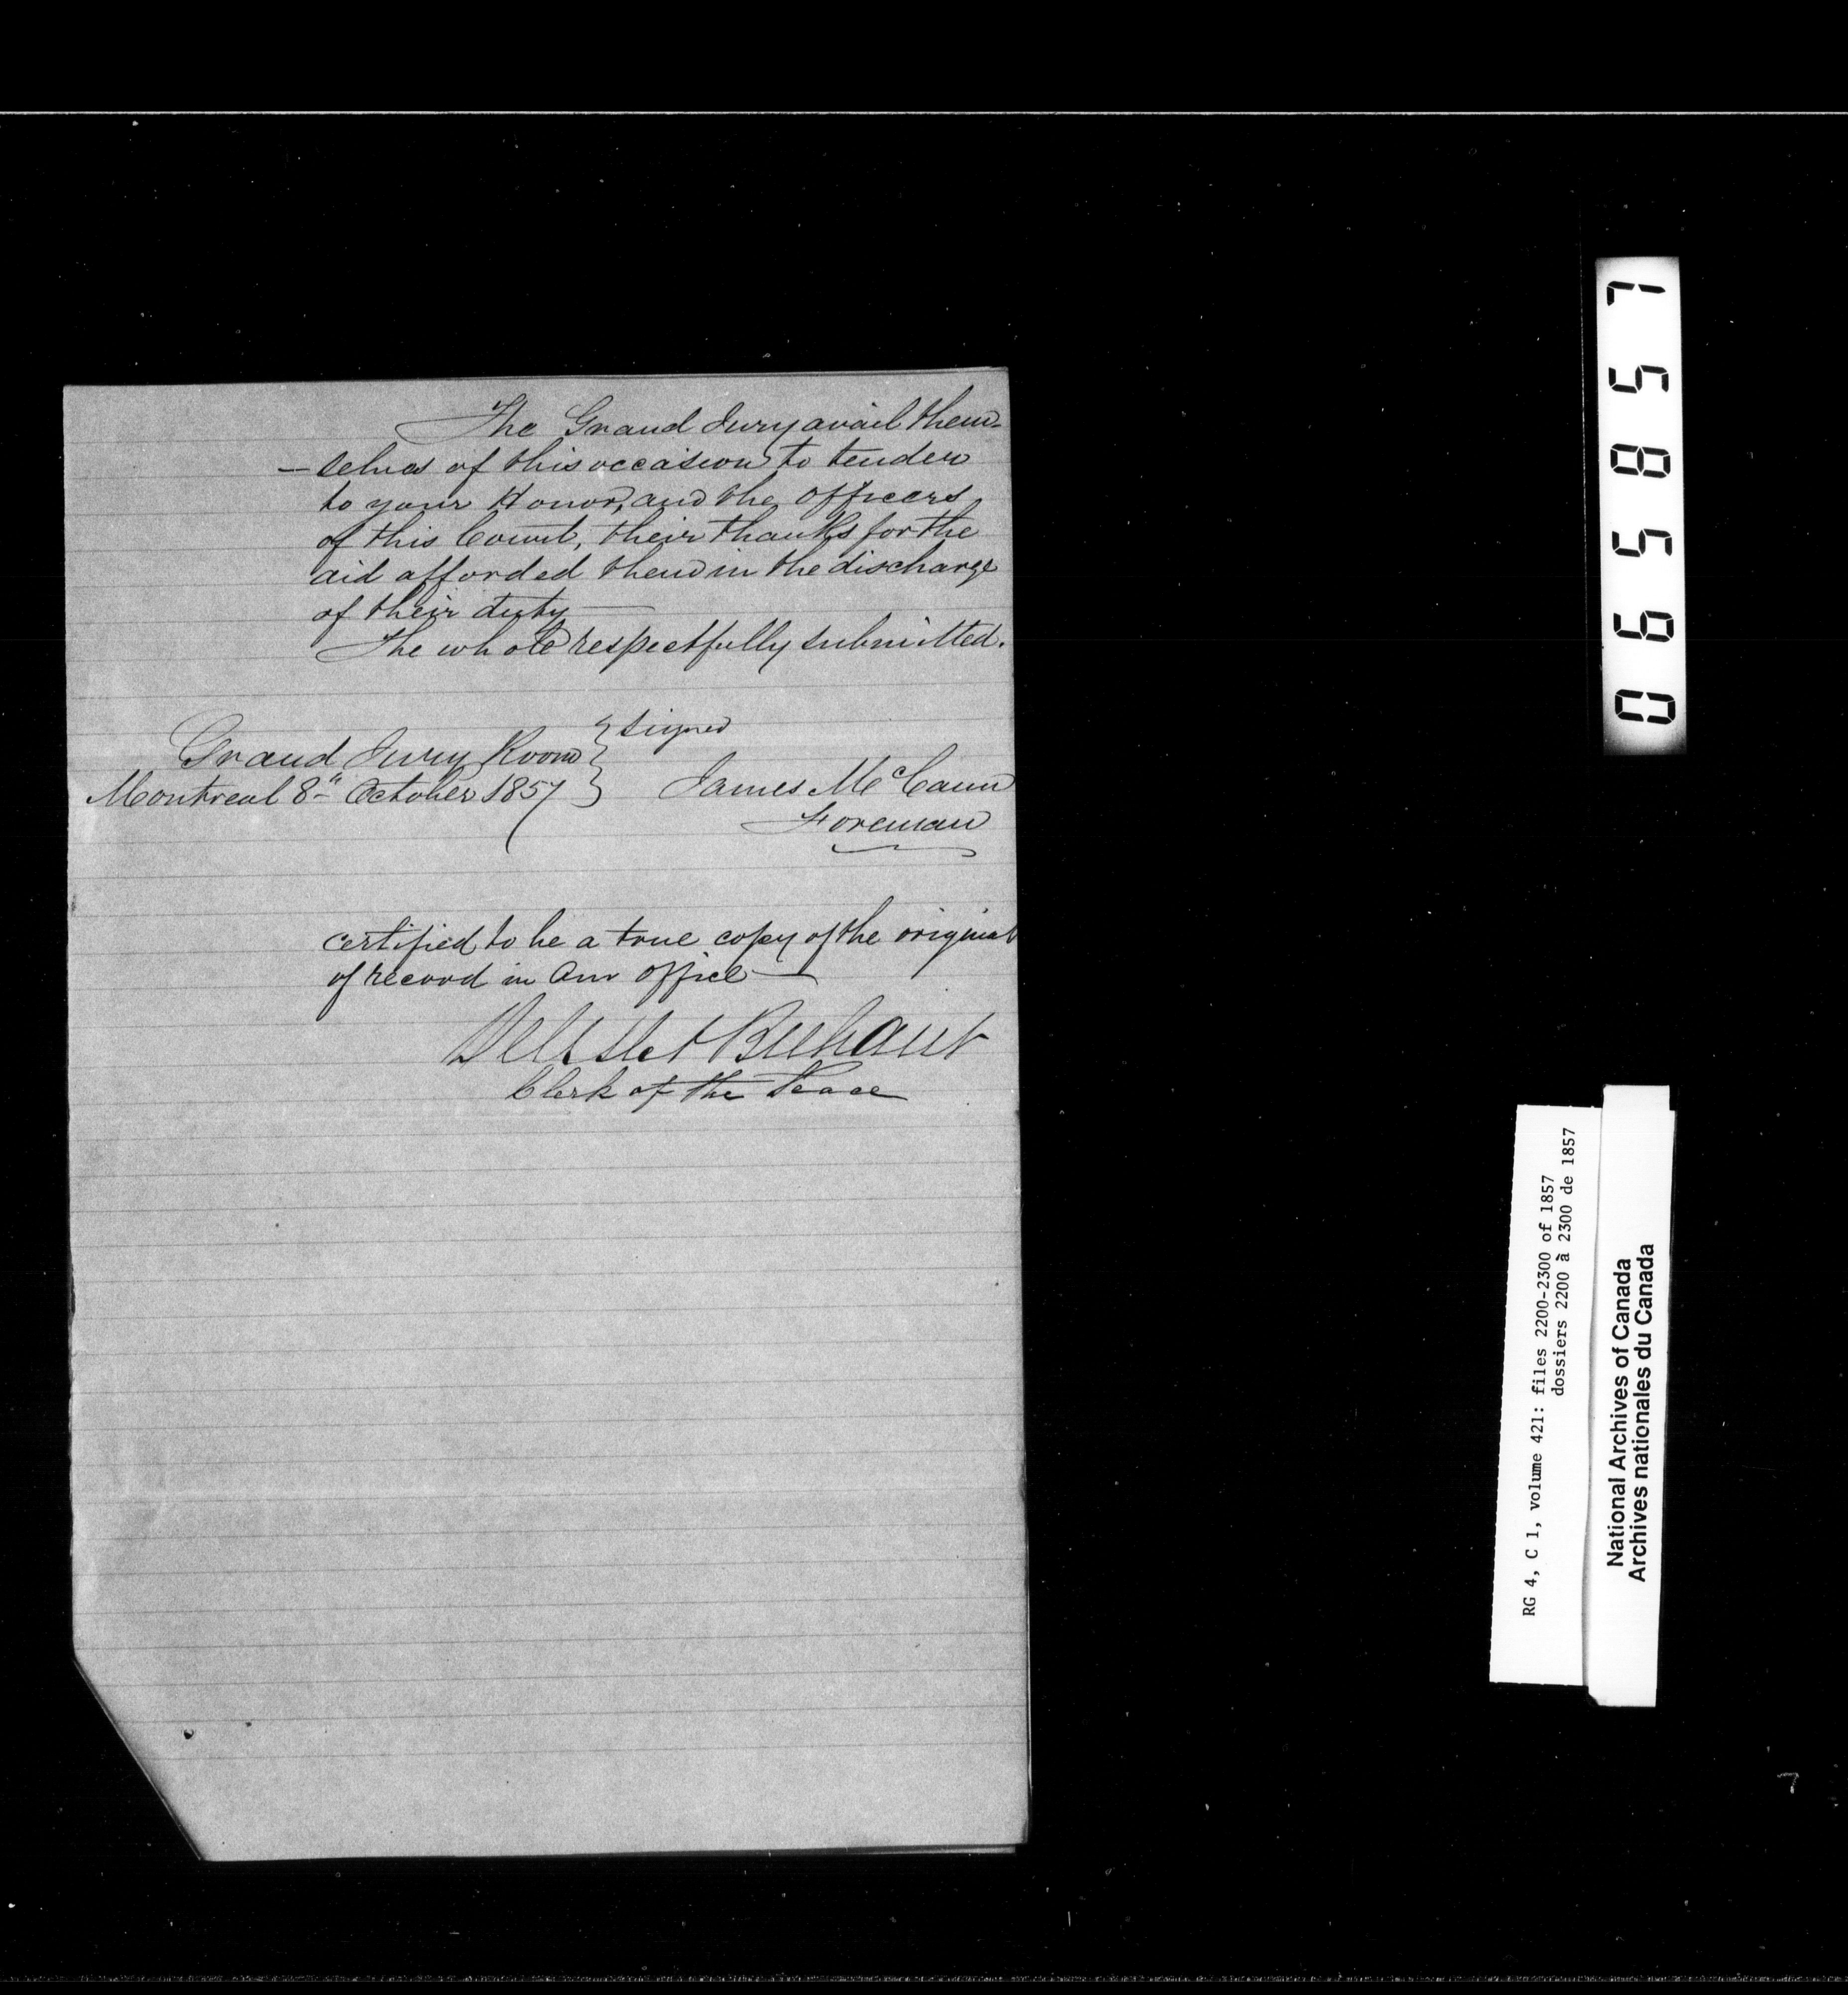 The Grand Jury avail them-
- selves of this occasion to tender
to your Honor, and the officers
of this Court, their thanks for the
aid afforded them in the discharge
of their duty —
The whole respectfully submitted.
Grand Jury Room } signed
Montreal 8th October 1857 } James McCann
Foreman
certified to be a true copy of the original
of record in our office —
Delisle & Brehaut
Clerk of the Peace
065857
RG 4, C 1, volume 421: files 2200-2300 of 1857
dossiers 2200 à 2300 de 1857
National Archives of Canada
Archives nationales du Canada